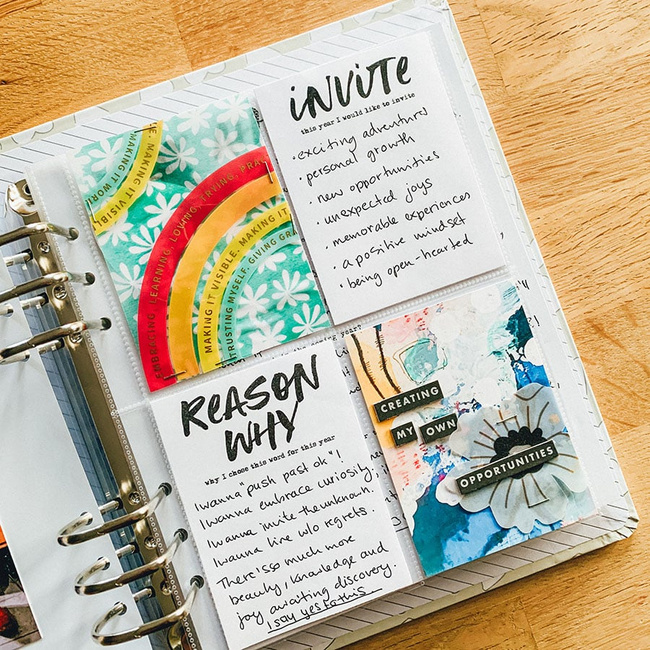 INVITE
this year I would like to invite
• exciting adventures
• personal growth
• new opportunities
• unexpected joys
• memorable experiences
• a positive mindset
• being open-hearted
MAKING IT VISIBLE
LEARNING, LOVING, LIVING,
MAKING IT VISIBLE. MAKING IT
TRUSTING MYSELF. GIVING
REASON
WHY
why I chose this word for this year
I wanna "push past ok"!
I wanna embrace curiosity.
I wanna invite the unknown.
I wanna live w/o regrets.
There's so much more
beauty, knowledge and
joy awaiting discovery.
I say yes to this
CREATING
MY OWN
OPPORTUNITIES